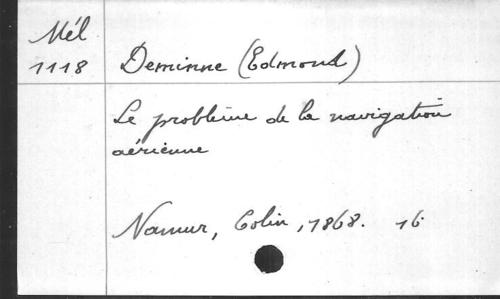 Mél
1118
Deminne (Edmond)
Le problème de la navigation
aérienne
Namur, Colin, 1868. 16